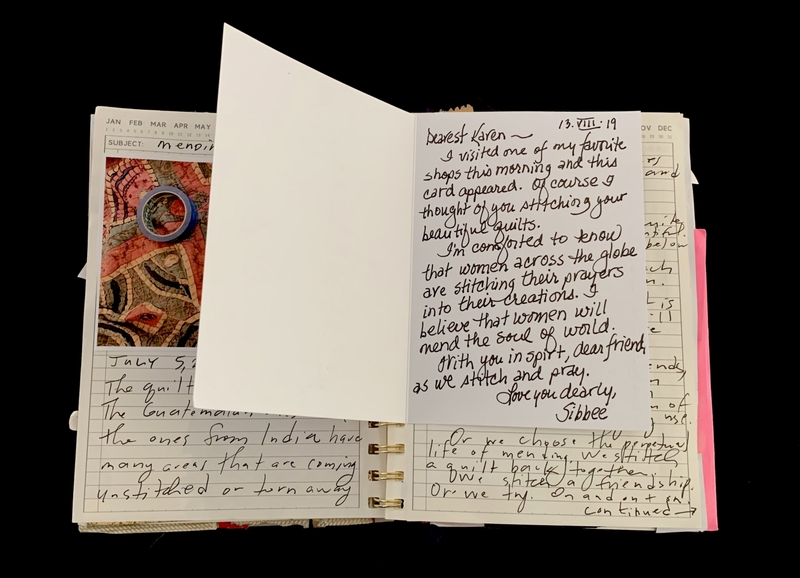 JAN FEB MAR APR MAY
SUBJECT: MENDIN
JULY 5,
The quilt
The Guatemalan
the ones from India have
many areas that are coming
unstitched or torn away
13.VIII.19
Dearest Karen ~
I visited one of my favorite
shops this morning and this
card appeared. Of course I
thought of you stitching your
beautiful quilts.
I'm comforted to know
that women across the globe
are stitching their prayers
into their creations. I
believe that women will
mend the soul of world.
With you in spirt, dear friend,
as we stitch and pray.
Love you dearly,
Sibbee
NOV DEC
and
below
is
of
Or we choose the perpetual
life of mending. We stitch
a quilt back together.
We stitch a friendship.
Or we try. On and on + on.
continued →